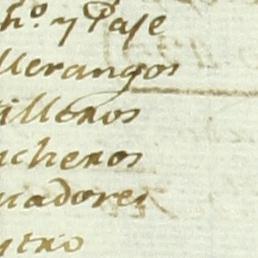 ho. y Paje
llerangos
illeros
cheros
uadores